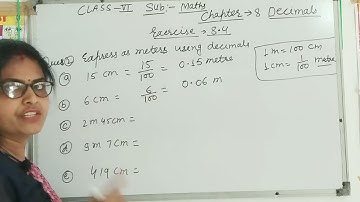 CLASS-VI Sub:- Maths
Chapter → 8 Decimals
Exercise - 8.4
Ques:② Express as meters using decimals
ⓐ 15 cm = 15/100 = 0.15 metre
ⓑ 6 cm = 6/100 = 0.06 m
ⓒ 2 m 45 cm =
ⓓ 9 m 7 cm =
ⓔ 419 cm =
1 m = 100 cm
1 cm = 1/100 metre